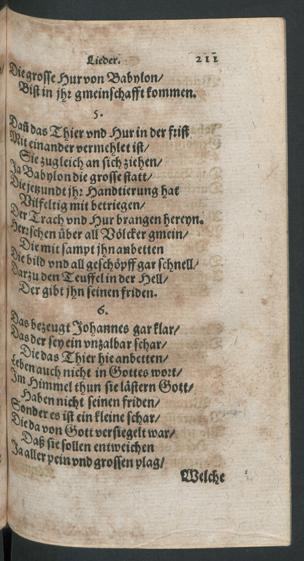 Lieder. 211
Die grosse Hur von Babylon/
Bist in jhr gmeinschafft kommen.
5.
Dañ das Thier vnd Hur in der frist
Mit einander vermehlet ist/
Sie zugleich an sich ziehen/
Ja Babylon die grosse statt/
Die jetzundt jhr Handtierung hat
Vilfeltig mit betriegen/
Der Trach vnd Hur brangen hereyn.
Herrschen über all Völcker gmein/
Die mit sampt jhn anbetten
Die bild vnd all geschöpff gar schnell/
Darzu den Teuffel in der Hell/
Der gibt jhn seinen friden.
6.
Das bezeugt Johannes gar klar/
Das der sey ein vnzalbar schar/
Die das Thier hie anbetten/
Leben auch nicht in Gottes wort/
Im Himmel thun sie lästern Gott/
Haben nicht seinen friden/
Sonder es ist ein kleine schar/
Die da von Gott versiegelt war/
Daß sie sollen entweichen
Ja aller pein vnd grossen plag/
Welche